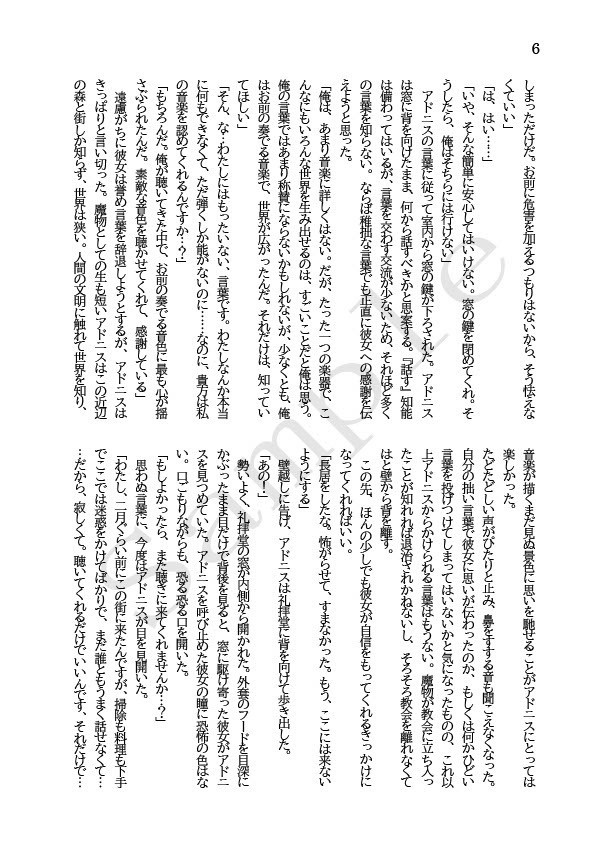 6
しまっただけだ。お前に危害を加えるつもりはないから、そう怯えな
くていい」
「は、はい……」
「いや、そんな簡単に安心してはいけない。窓の鍵を閉めてくれ。そ
うしたら、俺はそちらには行けない」
　アドニスの言葉に従って室内から窓の鍵が下ろされた。アドニス
は窓に背を向けたまま、何から話すべきかと思案する。『話す』知能
は備わってはいるが、言葉を交わす交流が少ないため、それほど多く
の言葉を知らない。ならば稚拙な言葉でも正直に彼女への感謝を伝
えようと思った。
「俺は、あまり音楽に詳しくはない。だが、たった一つの楽器で、こ
んなにもいろんな世界を生み出せるのは、すごいことだと俺は思う。
俺の言葉ではあまり称賛にならないかもしれないが、少なくとも、俺
はお前の奏でる音楽で、世界が広がったんだ。それだけは、知ってい
てほしい」
「そん、な…わたしにはもったいない、言葉です。わたしなんか本当
に何もできなくて、ただ弾くしか能がないのに……なのに、貴方は私
の音楽を認めてくれるんですか…？」
「もちろんだ。俺が聴いてきた中で、お前の奏でる音色に最も心が揺
さぶられたんだ。素敵な音色を聴かせてくれて、感謝している」
　遠慮がちに彼女は誉め言葉を辞退しようとするが、アドニスは
きっぱりと言い切った。魔物としての生も短いアドニスはこの近辺
の森と街しか知らず、世界は狭い。人間の文明に触れて世界を知り、
音楽が描くまだ見ぬ景色に思いを馳せることがアドニスにとっては
楽しかった。
たどたどしい声がぴたりと止み、鼻をすする音も聞こえなくなった。
自分の拙い言葉で彼女に思いが伝わったのか、もしくは何かひどい
言葉を投げつけてしまってはいないかと気になったものの、これ以
上アドニスからかけられる言葉はもうない。魔物が教会に立ち入っ
たことが知れれば退治されかねないし、そろそろ教会を離れなくて
はと壁から背を離す。
　この先、ほんの少しでも彼女が自信をもってくれるきっかけに
なってくれればいい。
「長居をしたな。怖がらせて、すまなかった。もう、ここには来ない
ようにする」
　壁越しに告げ、アドニスは礼拝堂に背を向けて歩き出した。
「あの！」
　勢いよく、礼拝堂の窓が内側から開かれた。外套のフードを目深に
かぶったまま目だけで背後を見ると、窓に駆け寄った彼女がアドニ
スを見つめていた。アドニスを呼び止めた彼女の瞳に恐怖の色はな
い。口ごもりながらも、恐る恐る口を開いた。
「もしよかったら、また聴きに来てくれませんか…？」
　思わぬ言葉に、今度はアドニスが目を見開いた。
「わたし、二月ぐらい前にこの街に来たんですが、掃除も料理も下手
でここでは迷惑をかけてばかりで、まだ誰ともうまく話せなくて…
…だから、寂しくて。聴いてくれるだけでいいんです、それだけで…
Sample